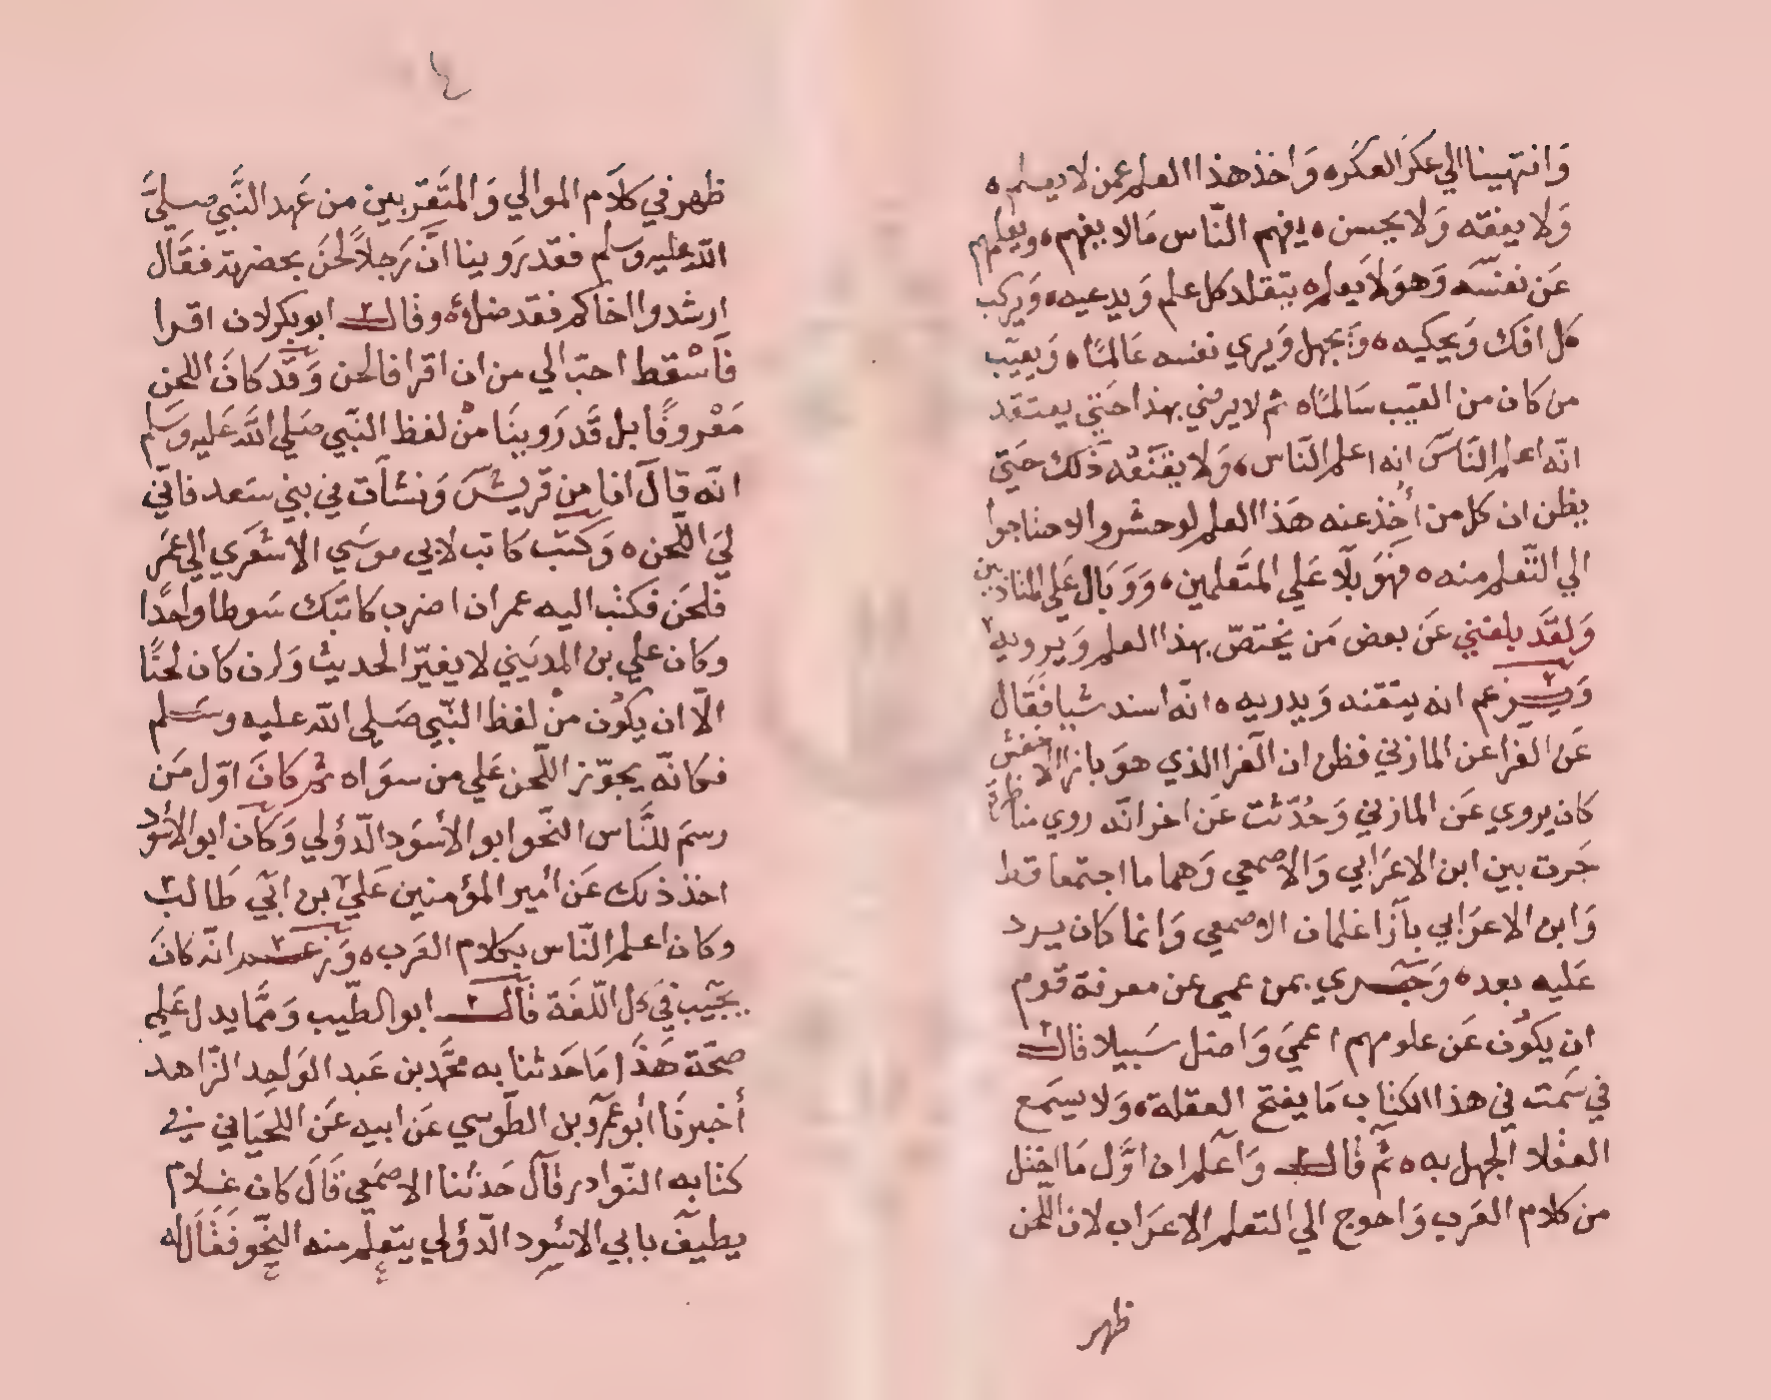 وَانتهينا الي عكر العكره وَاخذ هذا العلم عمن لا يعلم ه
وَلا يفقه وَلا يحسن ه يفهم النّاس مَالا يفهم ه ويعلمهم
عَن نفسه وَهوَ لا يَعلم ه يتقلد كل علم وَيدعيه ه وَيركب
كل افك وَيحكيه ه وَيجهل وَيري نفسه عَالمًا ه وَيعيّب
من كان من العَيب سَالمًا ه ثم لا يرضي بهذا حَتي يعتقد
انّه اعلم النَاسَ انه اعلم النّاس ه وَلا يقنعُه ذلك حَتي
يظن ان كل من أُخذ عنه هَذا العلم لو حشروا لاحتاجوا
الي التّعلم منه ه فهوَ بلَا عَلي المتَعلمين ه وَوَبَال عَلي المتاذبين
وَلقَد بلغني عَن بعض مَن يختصّ بهذا العلم وَيرويه
وَيزعم انه يتقنه وَيدريه ه انّه اسند شيا فقَال
عَن الفَرا عن المازني فظن ان الفَرا الذي هوَ بازا الاخفش
كان يروي عَن المازني وَحُدّثت عَن اخر انّه روي مناظرة
جَرت بين ابن الاعرَابي وَالاصمعي وَهما ما اجتمعا قط
وَابن الاعرَابي بازَا غلمان الاصمعي وَانما كان يرد
عَليه بعد ه وَحَري بمن عمي عن معرفة قوم
ان يكوُن عَن علومهم اعميَ وَاضل سَبيلا قال
في سَمت في هذا الكتِاب مَا يفتح العقلة ه وَلا يسَمع
العقلا الجهل به ه ثم قال وَاعلم ان اوّل مَا اختل
من كلام العَرب وَاحوج الي التعلم الاعرَاب لان اللّحن
ظهر
٤
ظهر في كلاَم الموالي وَالمتَعرّبين من عَهد النَّبي صلي
الله عليه وسلم فقد رَوينا انّ رَجلاً لحَن بحضرته فقَال
ارشدوا اخاكم فقد ضل ه وقال ابو بكر لان اقرا
فَاسْقط احبّ الي من ان اقرا فالحن وَقَد كانَ اللحن
مَعْروفًا بل قَد رَوينَا منْ لفظ النبّي صَلي الله عَليه وسَلم
انّه قالَ انا من قرَيش وَنشأت في بني سَعد فانّي
ليَ اللّحن ه وَكتَب كاتب لابي موسَي الاشعَري الي عمَر
فلحَن فكتب اليه عمر ان اضرب كاتبَك سَوطا واحدًا
وكان علي بن المديَني لا يغيّر الحديث وَان كان لحنًا
الاّ ان يكوُن منْ لفظ النبّي صَلي الله عليه وسَلم
فكانّه يجوّز اللّحن عَلي من سوَاه ثم كانَ اوّل مَن
رسمَ للنَّاس النّحو ابو الأسوَد الدّؤلي وَكان ابو الأسوَد
اخذ ذلك عَن أمير المؤمنين عَلي بن ابي طَالب
وكان اعلم النّاس بكلام العَرب ه وَزعموا انّه كانَ
يجيَب في كل اللّغَة قَال ابو الطّيب وَممَّا يدل عَلي
صحّة هَذا مَا حَدثنا به محمَّد بن عَبد الوَاحد الزّاهد
أخبرنَا أبو عَمرو بن الطّوسي عَن ابيه عَن اللحيَاني في
كتابه النّوادر قالَ حَدثنا الاصمَعي قَالَ كان غلام
يطيف بابي الاسَود الدّؤلي يتعلّم منه النّحو فَقَال له